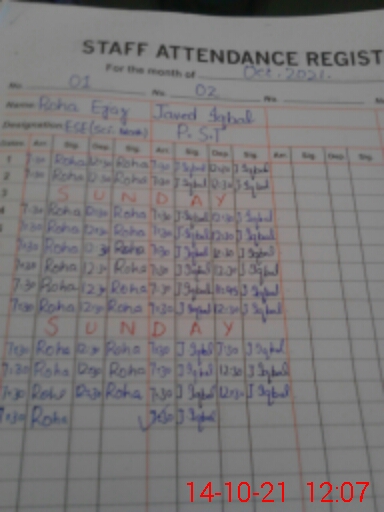 STAFF ATTENDANCE REGIST
For the month of Oct. 2021.
No 01 No. 02 No.
Name Roha Ejaz Javed Iqbal
Designation ESE (Sci. P.S.T
Dates Arr. Sig. Dep. Sig. Arr. Sig. Dep. Sig. Arr. Sig. Dep. Sig.
1 7:30 Roha 12:30 Roha 7:30 J Iqbal J Iqbal
2 7:30 Roha 12:30 Roha 7:30 J Iqbal 12:30 J Iqbal
3 S U N D A Y
4 7:30 Roha 12:30 Roha 7:30 J Iqbal 12:30 J Iqbal
5 7:30 Roha 12:30 Roha 7:30 J Iqbal 12:30 J Iqbal
7:30 Roha 12:30 Roha 7:30 J Iqbal J Iqbal
7:30 Roha 12:30 Roha 7:30 J Iqbal 12:30 J Iqbal
7:30 Roha 12:30 Roha 7:30 J Iqbal J Iqbal
7:30 Roha 12:30 Roha 7:30 J Iqbal 12:30 J Iqbal
S U N D A Y
7:30 Roha 12:30 Roha 7:30 J Iqbal 7:30 J Iqbal
7:30 Roha 12:30 Roha 7:30 J Iqbal 12:30 J Iqbal
7:30 Roha 12:30 Roha 7:30 J Iqbal 12:30 J Iqbal
7:30 Roha 7:30 J Iqbal
14-10-21 12:07